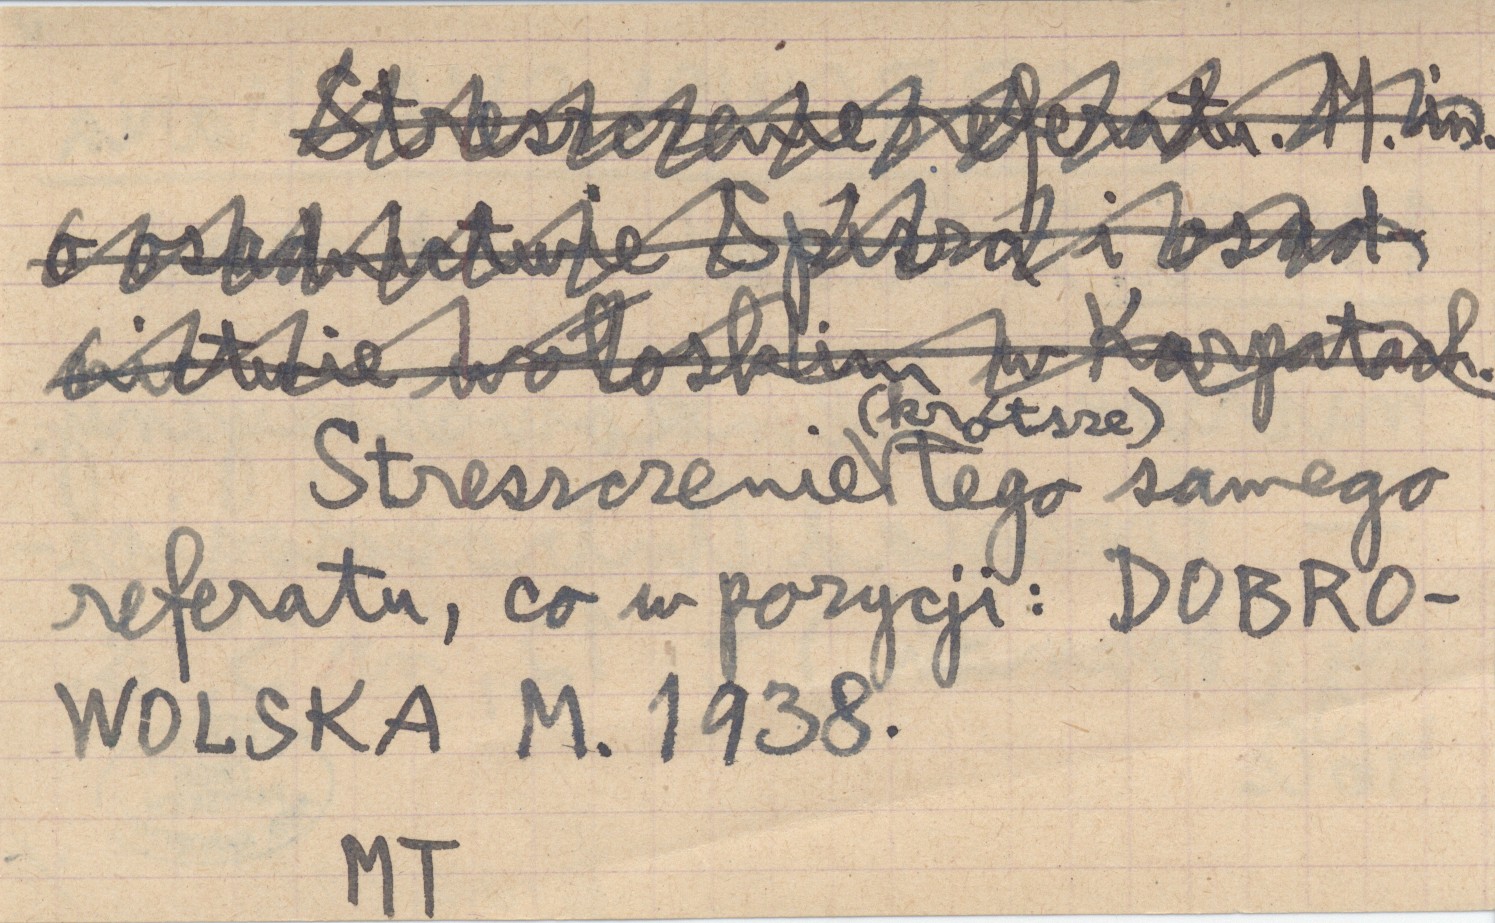 Streszczenie referatu. M. in.
o osadnictwie Spisza i osad-
nictwie wołoskim w Karpatach.
(krótsze)
Streszczenie tego samego
referatu, co w pozycji: DOBRO-
WOLSKA M. 1938.
MT